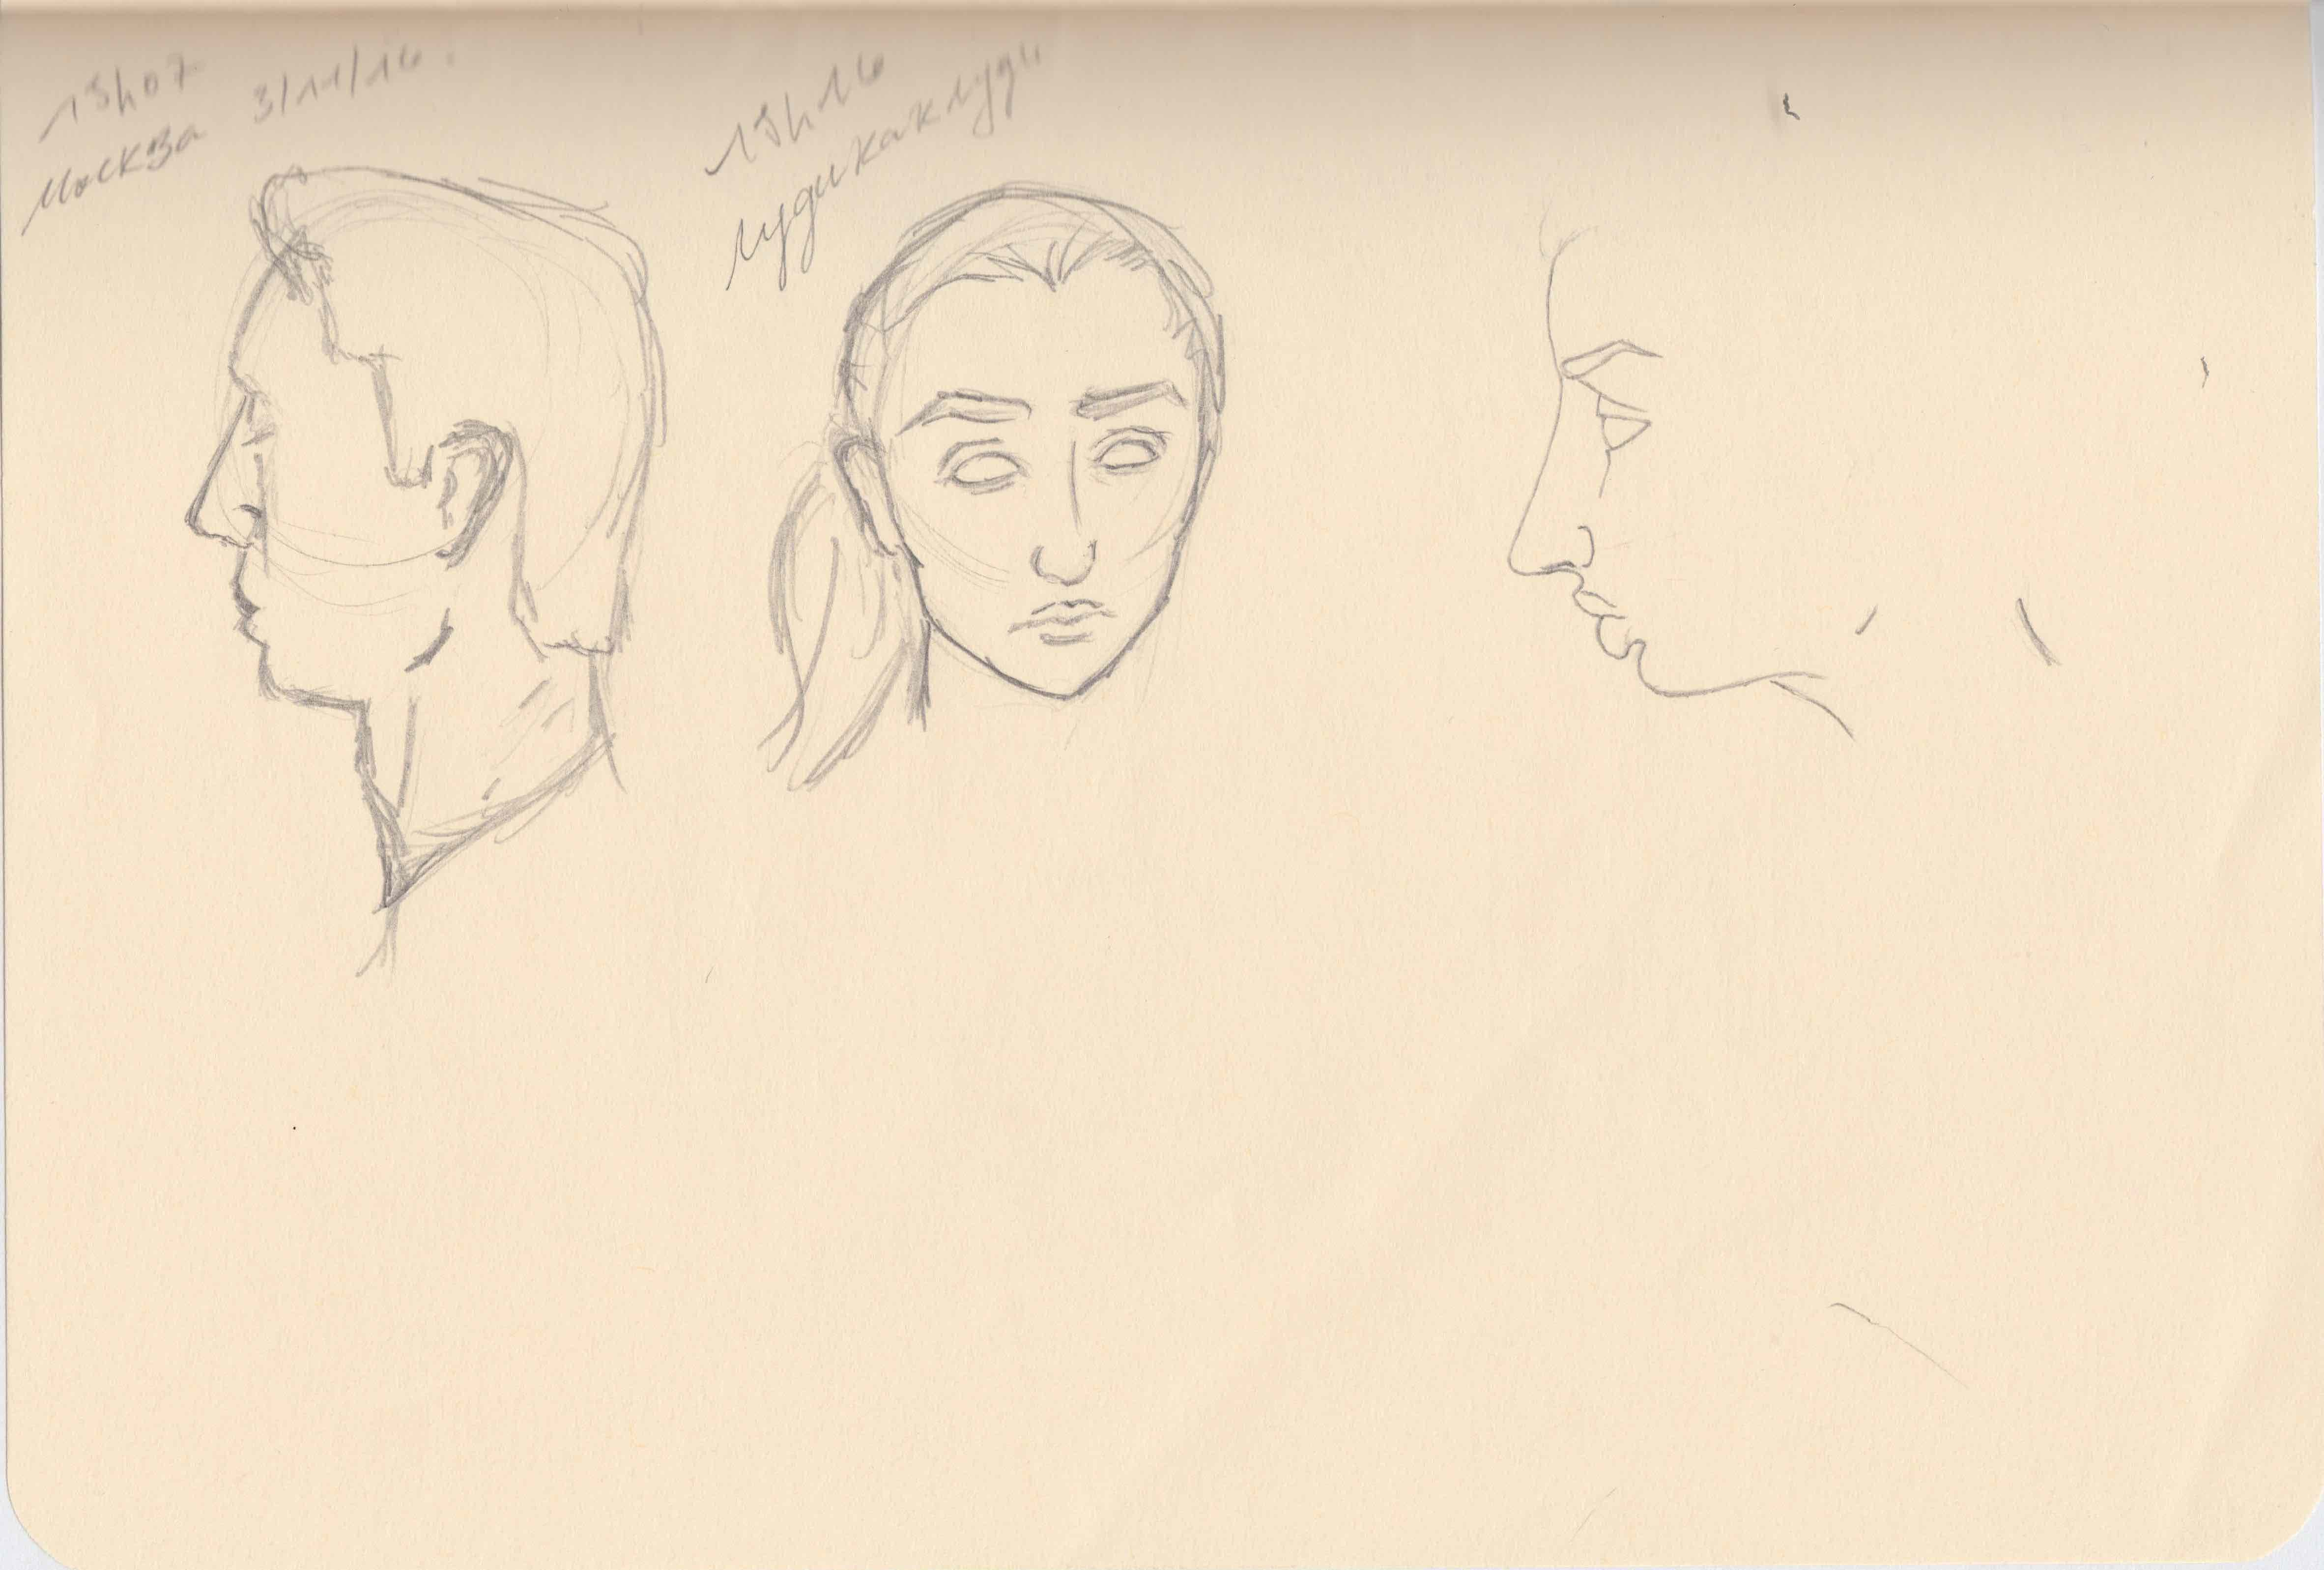 15h07
Москва 3/11/16.
15h16
лудикаклуди